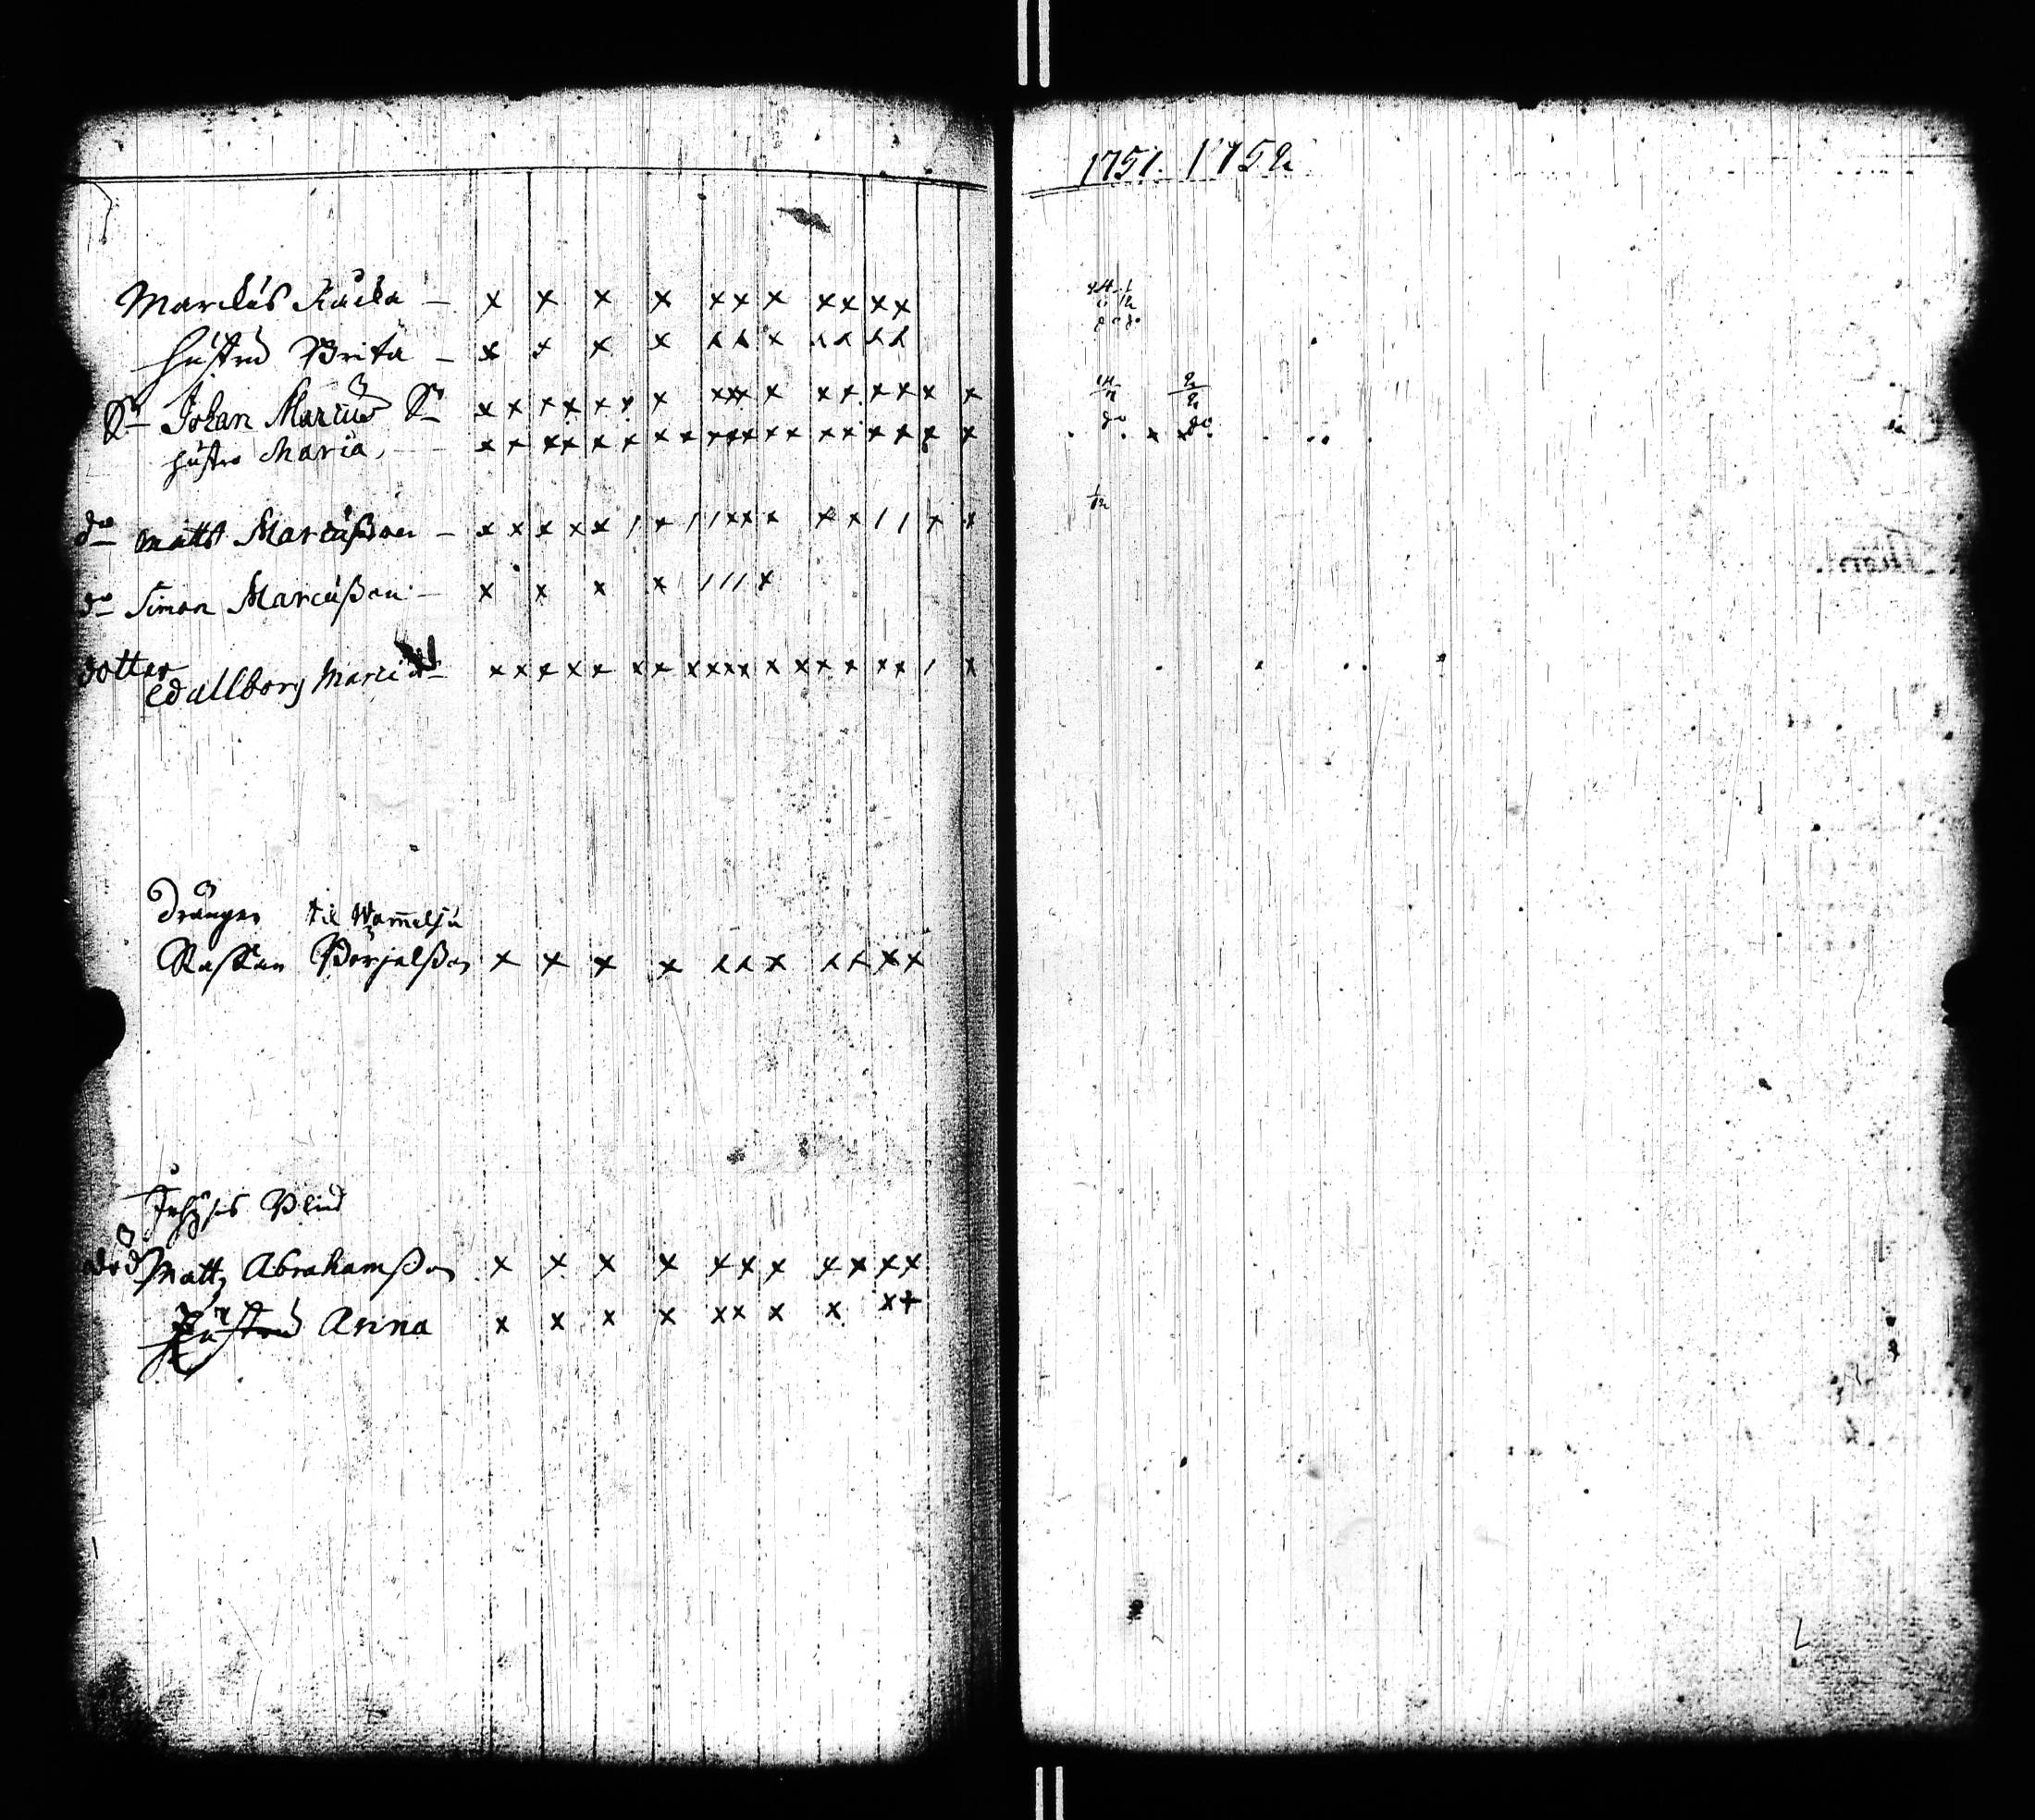 1751. 1752
Marcus Kucka – x x x x xx x xx xx
hustro Brita – x x x x xx x xx xx
Sn Johan Marcuss Sn xx xx xx x xxx x xx xx x x
hustro Maria, – xx xx xx xx xxx xx xx xx x x
do do
do Matts Marcusson – xx xx x / x / / xx x xx / / x x
do Simon Marcusson – x x x x / / / x
dotter
Wallborg Marcu – xx xx x xx xxxx x xx x xx / x
Dränger til Wammelsu
Staffan Börjelsson x x x x xx x xx xx
Inhyses
död Matts Abrahamsson x x x x xx x xx xx
hustro Anna x x x x xx x x xx